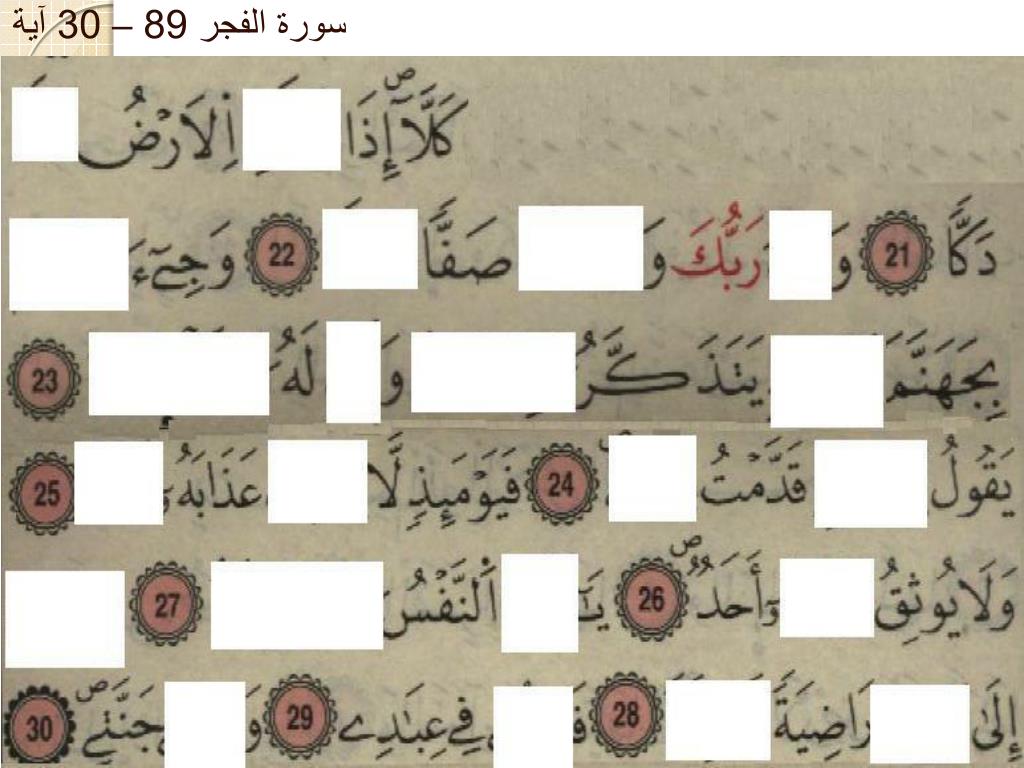 سورة الفجر 89 – 30 آية
كَلَّآ إِذَا اِ۬لَارْضُ
دَكّٗا 21 وَ رَبُّكَ وَ صَفّٗا 22 وَجِےٓءَ
بِجَهَنَّمَ يَتَذَكَّرُ وَ لَهُ 23
يَقُولُ قَدَّمْتُ 24 فَيَوْمَئِذٖ لَّا عَذَابَهُۥ 25
وَلَا يُوثِقُ أَحَدٞ 26 يَٰٓ اَ۬لنَّفْسُ 27
إِلَىٰ رَاضِيَةٗ 28 فَ فِے عِبَٰدِے 29 وَ جَنَّتِے 30